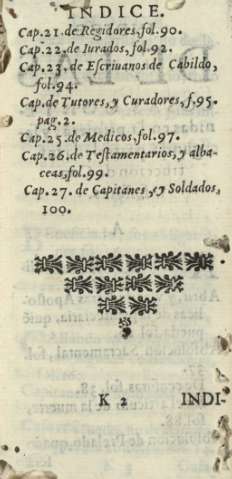 INDICE.
Cap.21.de Regidores,fol.90.
Cap.22.de Iurados,fol.92.
Cap.23.de Eſcriuanos de Cabildo,
fol.94.
Cap.de Tutores,y Curadores,f.95.
pag.2.
Cap.25.de Medicos,fol.97.
Cap.26.de Teſtamentarios,y alba-
ceas,fol.99.
Cap.27.de Capitanes,y Soldados,
100.
K 2 INDI-